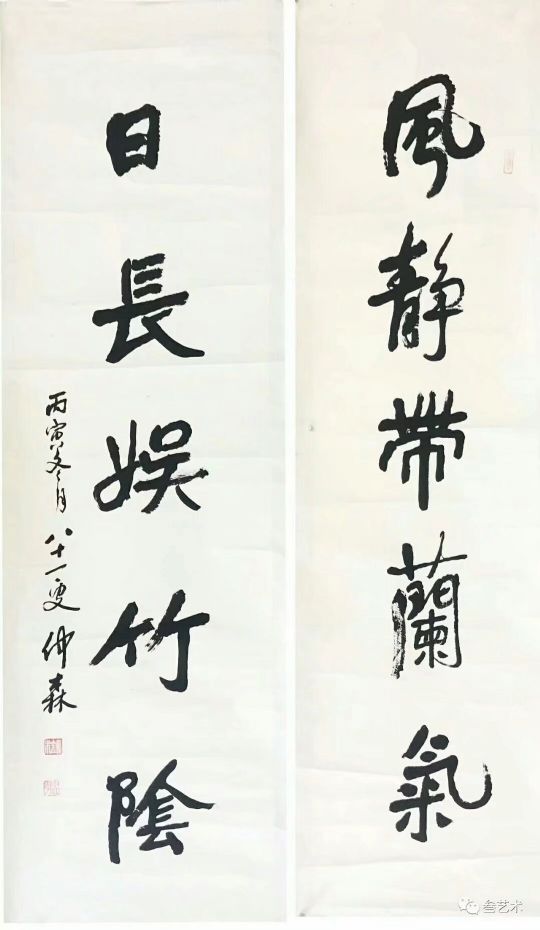 風静帶蘭氣
日長娛竹陰
丙寅冬月八十一叟仲森
叁艺术